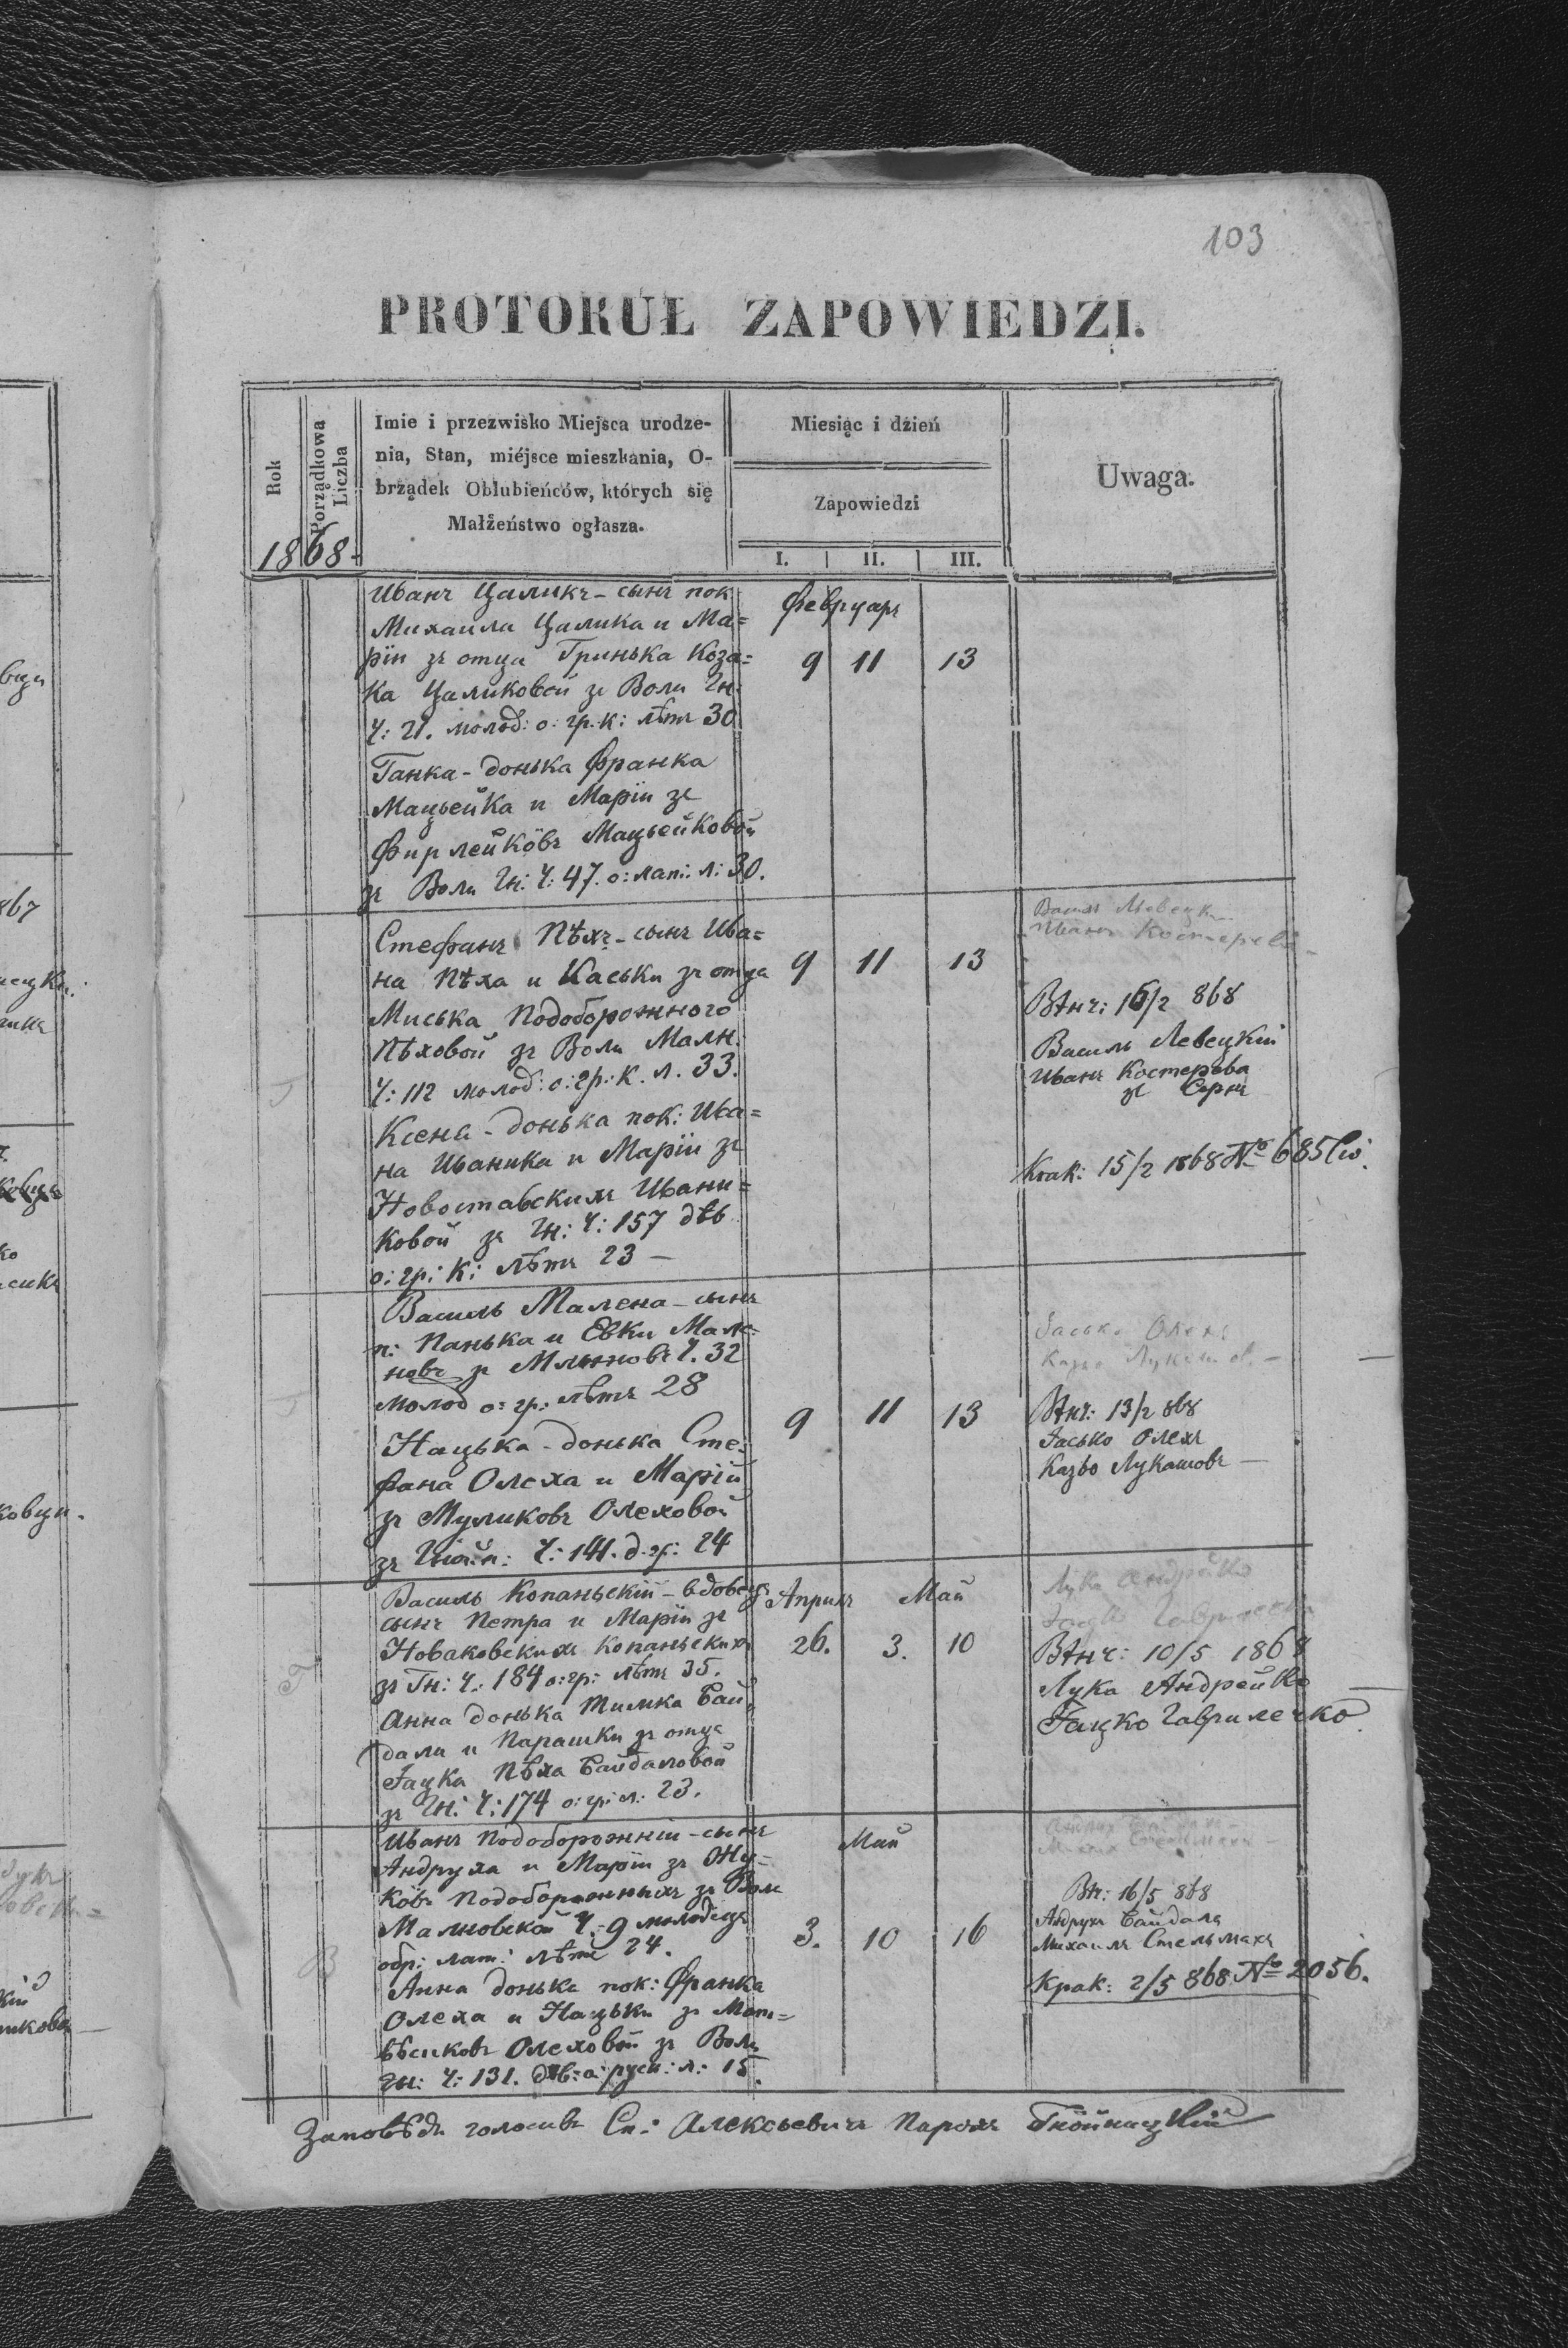 103
PROTOKUŁ ZAPOWIEDZI.
Rok
Porządkowa Liczba
Imie i przezwisko Miejsca urodze-
nia, Stan, miéjsce mieszkania, O-
brządek Oblubieńców, których się
Małżeństwo ogłasza.
Miesiąc i dźień
Zapowiedzi
I. II. III.
Uwaga.
1868-
Иванъ Цаликъ - сынъ пок
Михаила Цалика и Ма=
ріи зъ отца Гринька Коза=
ка Цаликовой зъ Воли Гн.
Ч: 21. молод: о: гр: к: лѣтъ 30
Февруаръ
9 11 13
Ганка - донька Франка
Мацьейка и Маріи зъ
Фирлейкôвъ Мацьейковой
зъ Воли Гн: Ч: 47. о: лат: л: 30.
Стефанъ Пѣхъ - сынъ Ива=
на Пѣха и Каськи зъ отца
Миська Подоборожного
Пѣховой зъ Воли Малн.
Ч: 112 молод: о: гр: к. л. 33.
9 11 13
Ксена - донька пок: Ива=
на Иваника и Маріи зъ
Новоставскихъ Ивани=
ковой зъ Гн: Ч: 157 дѣв
о: гр: к: лѣтъ 23 -
Василь Левецк
Иванъ Костерева
Вѣнч: 16/2 868
Василь Левецкій
Иванъ Костерева
зъ Серни
Крак: 15/2 1868 № 685
Василь Малена - сынъ
п: Панька и Евки Мале
новъ зъ Млынôвъ Ч. 32
молод о: гр: лѣтъ 28
Нацька - донька Сте=
фана Олеха и Маріи
зъ Муликовъ Олеховой
зъ Гнойн: Ч: 141. д. гр: 24
9 11 13
Яасько Олехъ
Казьо Лукашовъ -
Вѣнч: 13/2 868
Яасько Олехъ
Казьо Лукашовъ -
Василь Копаньскій - вдовець
сынъ Петра и Маріи зъ
Новаковскихъ Копаньскихъ
зъ Гн: Ч: 184 о: гр: лѣтъ 35.
Анна донька Тимка Бай=
дали и Парашки зъ отца
Яацка Пѣха Байдаловой
зъ Гн: Ч: 174 о: гр: л: 23.
Априль Май
26. 3. 10
Лука Андрейко
Вѣнч: 10/5 1868
Лука Андрейко
Яацко Гаврилечко
Иванъ Подоборожній - сынъ
Андруха и Маріи зъ Жу=
кôвъ Подоборожныхъ зъ Воли
Малновской Ч: 9 молодець
обр: лат: лѣтъ 24.
Анна донька пок: Франка
Олеха и Нацьки зъ Мат=
вѣсиковъ Олеховой зъ Воли
Гн: Ч: 131. дѣв: о: руск: л: 15.
Май
3. 10 16
Вн: 16/5 868
Андрухъ Байдала
Михаилъ Стельмахъ
Крак: 2/5 868 № 2056.
Заповѣди голосивъ Сп: Алексьевичъ Парохъ Гнôйницкій